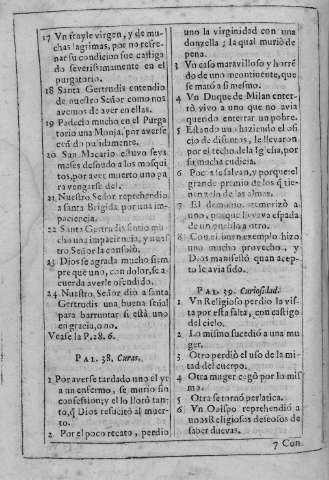 17 Vn frayle virgen, y de mu-
chas lagrimas, por no refre-
nar su condicion fue castiga
do severissimamente en el
purgatorio.
18 Santa Gertrudis entendio
de nuestro Señor como nos
avemos de aver en ellas.
19 Padecio mucho en el Purga
torio una Monja, por averse
escusado puldamente.
20 San Macario estuvo seys
meses desnudo a los mosqui
tos, por aver muerto uno pa
ra vengarse del.
21 Nuestro Señor reprehendio
a santa Brigida por una im-
paciencia.
22 Santa Gertrudis sintio mu
cho una impaciencia, y nues
tro Señor la consolò.
23 Dios se agrada mucho siem
pre que uno, con dolor, se a-
cuerda averle ofendido.
24 Nuestro, Señor dio a santa
Gertrudis una buena señal
para barruntar si està uno
en gracia, o no.
Vease la P. 28. 6.
PAL. 38. Curas.
1 Por averse tardado uno el yr
a un enfermo, se murio sin
confession; y el lo lloró tan-
to, q̃ Dios resucitò al muer-
to.
2 Por el poco recato, perdio
uno la virginidad con una
donzella; la qual muriò de
pena.
3 Vn caso maravilloso y horrẽ
do de uno incontinente, que
se matò a si mesmo.
4 Vn Duque de Milan enter-
rò vivo a uno que no avia
querido enterrar un pobre.
5 Estando uno haziendo el ofi
cio de difuntos, le llevaron
por el techo de la Iglesia, por
su mucha cudicia.
6 Pocos se salvan, y porque: el
grande premio de los q̃ tie-
nen zelo de las almas.
7 El demonio atemorizò a
uno, porque llevava espada
de un pueblo a otro.
8 Con el buen exemplo hizo
uno mucho provecho, y
Dios manifestò quan acep-
to le avia sido.
PAL. 39. Curiosidad.
1 Vn Religioso perdio la vis-
ta por esta falta, con castigo
del cielo.
2 Lo mismo sucediò a una mu
ger.
3 Otro perdiò el uso de la mi-
tad del cuerpo.
4 Otra muger cegò por lo mis
mo.
5 Otra se tornò perlatica.
6 Vn Obispo reprehendiò a
unos Religiosos deseosos de
saber nuevas.
7 Con